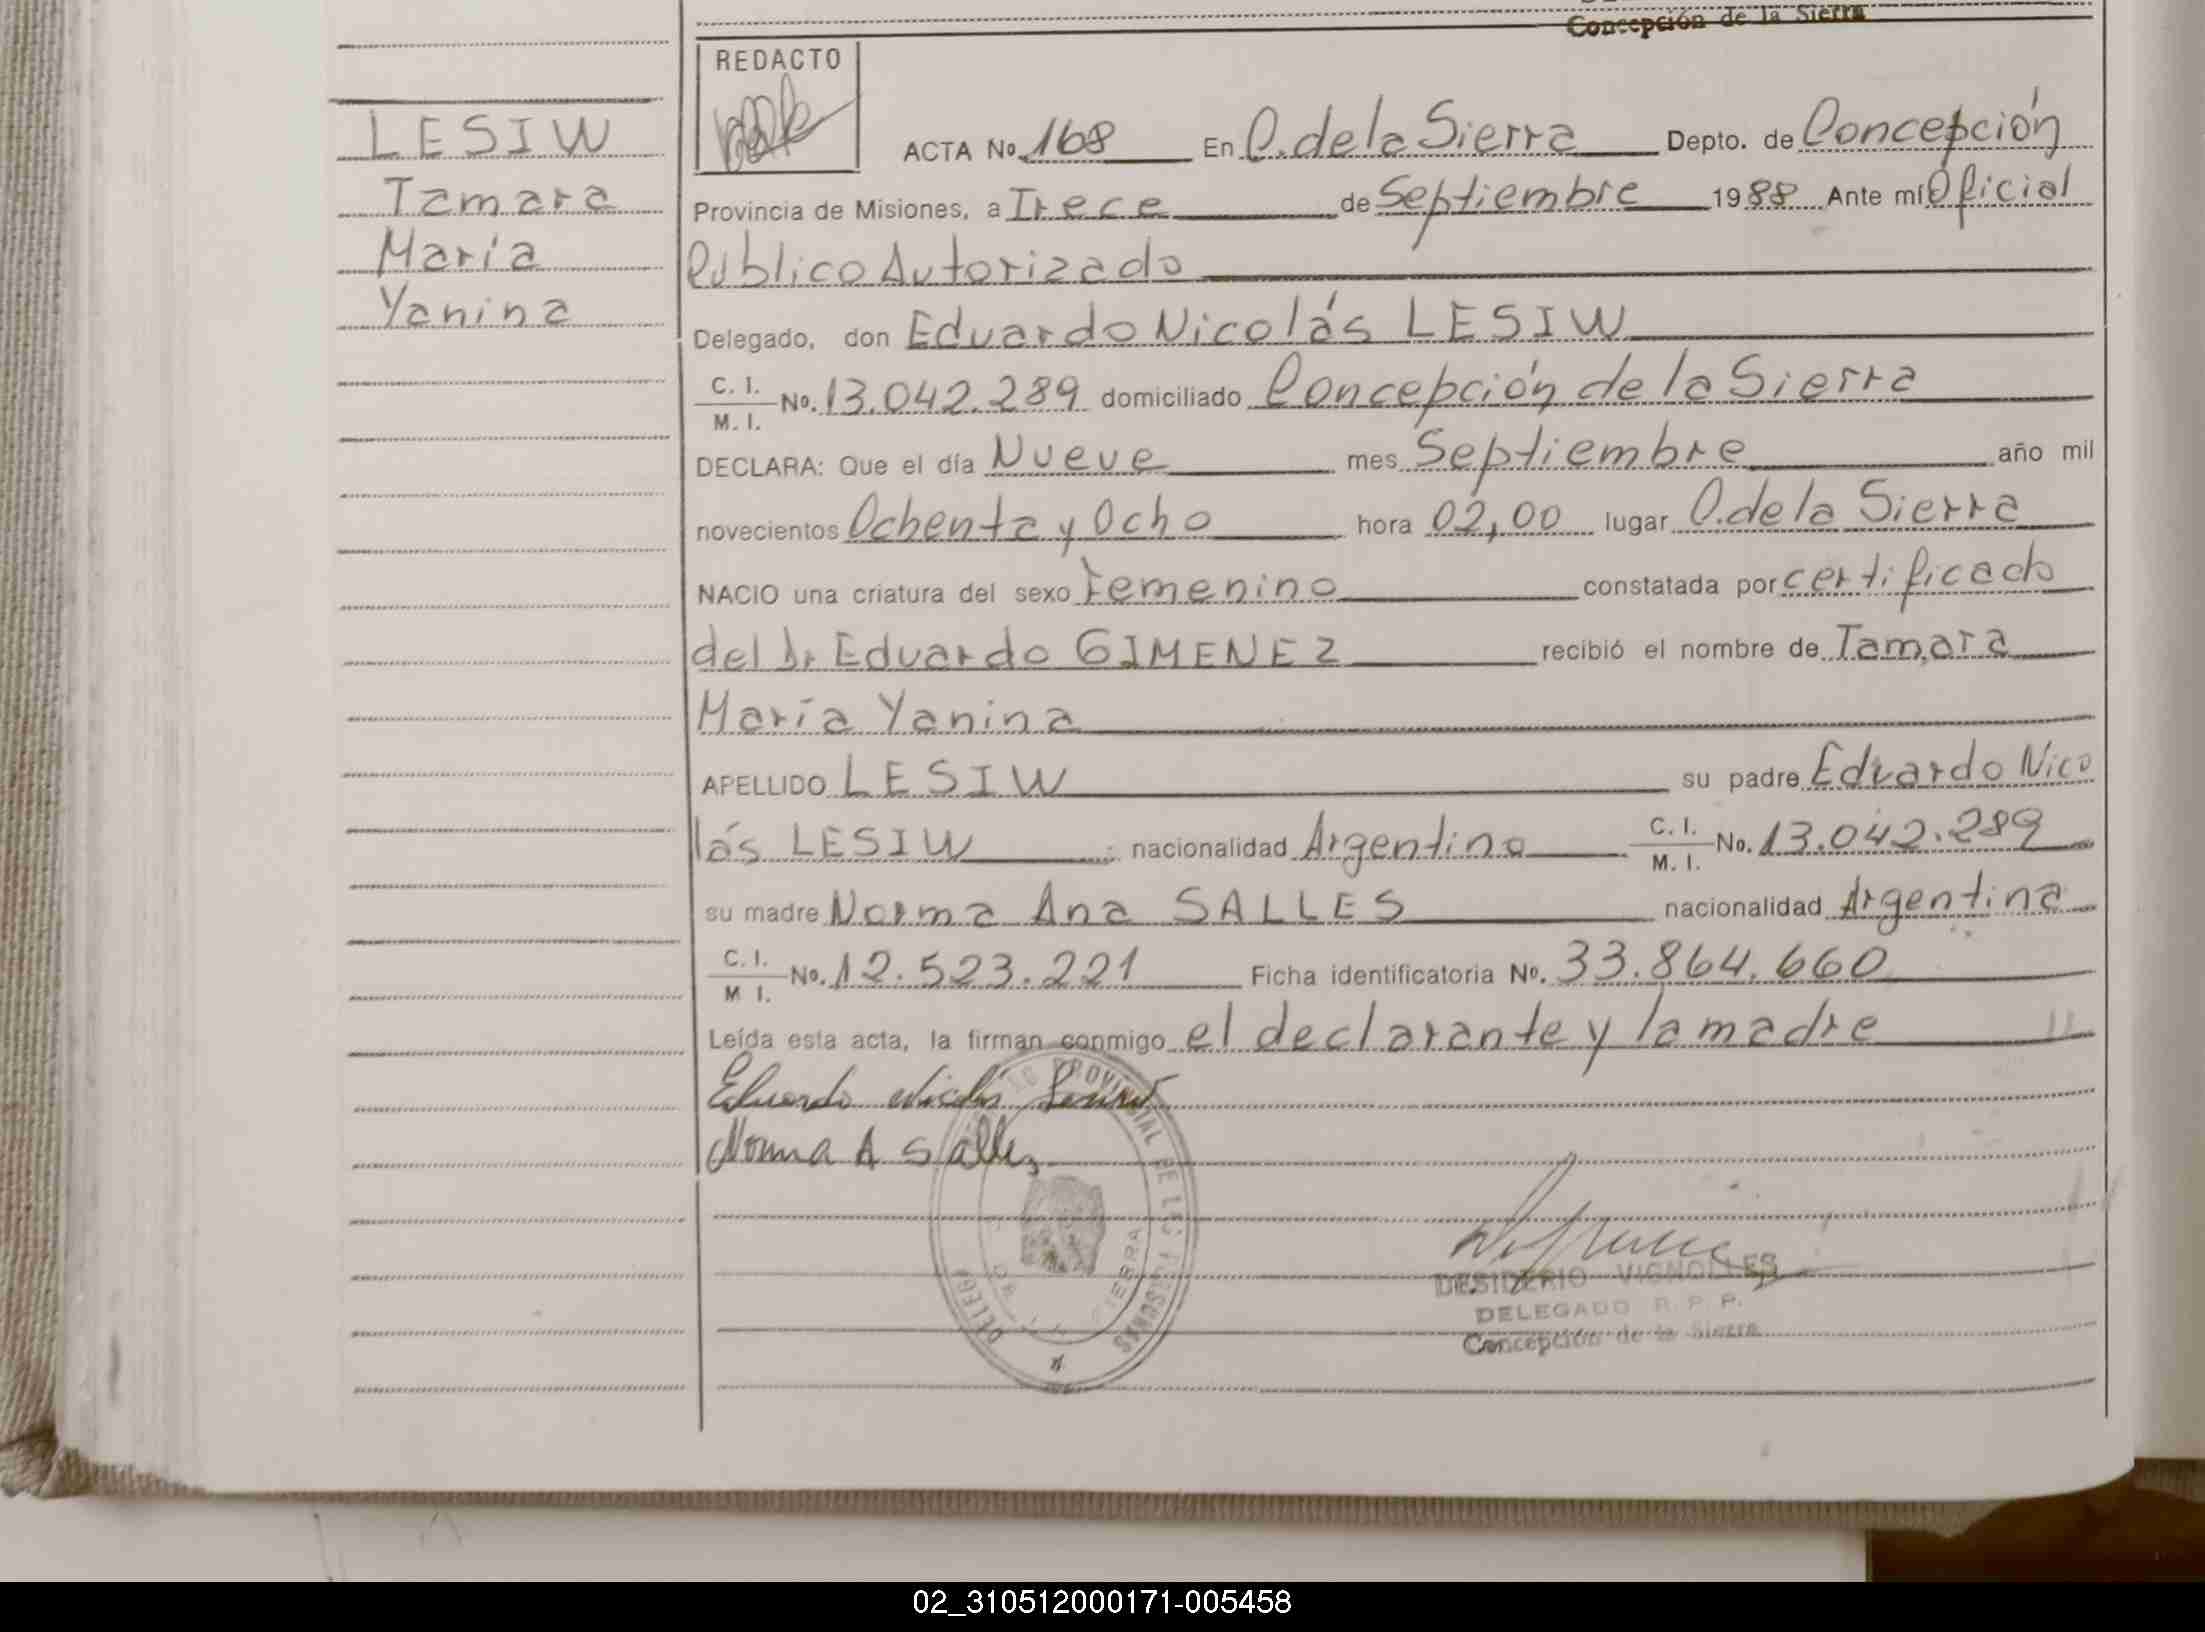 Concepción de la Sierra
REDACTO
LESIW
Tamara
María
Yanina
ACTA No. 168 En C. de la Sierra Depto. de Concepción
Provincia de Misiones, a Trece de Septiembre 1988 Ante mí Oficial
Público Autorizado
Delegado, don Eduardo Nicolás LESIW
C. I.
M. I. No. 13.042.289 domiciliado Concepción de la Sierra
DECLARA: Que el día Nueve mes Septiembre año mil
novecientos Ochenta y Ocho hora 02,00 lugar C. de la Sierra
NACIO una criatura del sexo Femenino constatada por certificado
del Dr Eduardo GIMENEZ recibió el nombre de Tamara
María Yanina
APELLIDO LESIW su padre Eduardo Nico
lás LESIW ; nacionalidad Argentino C. I. M. I. No. 13.042.289
su madre Norma Ana SALLES nacionalidad Argentina
C. I.
M I. No. 12.523.221 Ficha identificatoria No. 33.864.660
Leída esta acta, la firman conmigo el declarante y la madre
Eduardo Nicolás
Norma A Salles
PROVINCIAL DE LAS PERSONAS
SIERRA
DESIDERIO VIGNOLLES
DELEGADO R. P. P.
Concepción de la Sierra
02_310512000171-005458